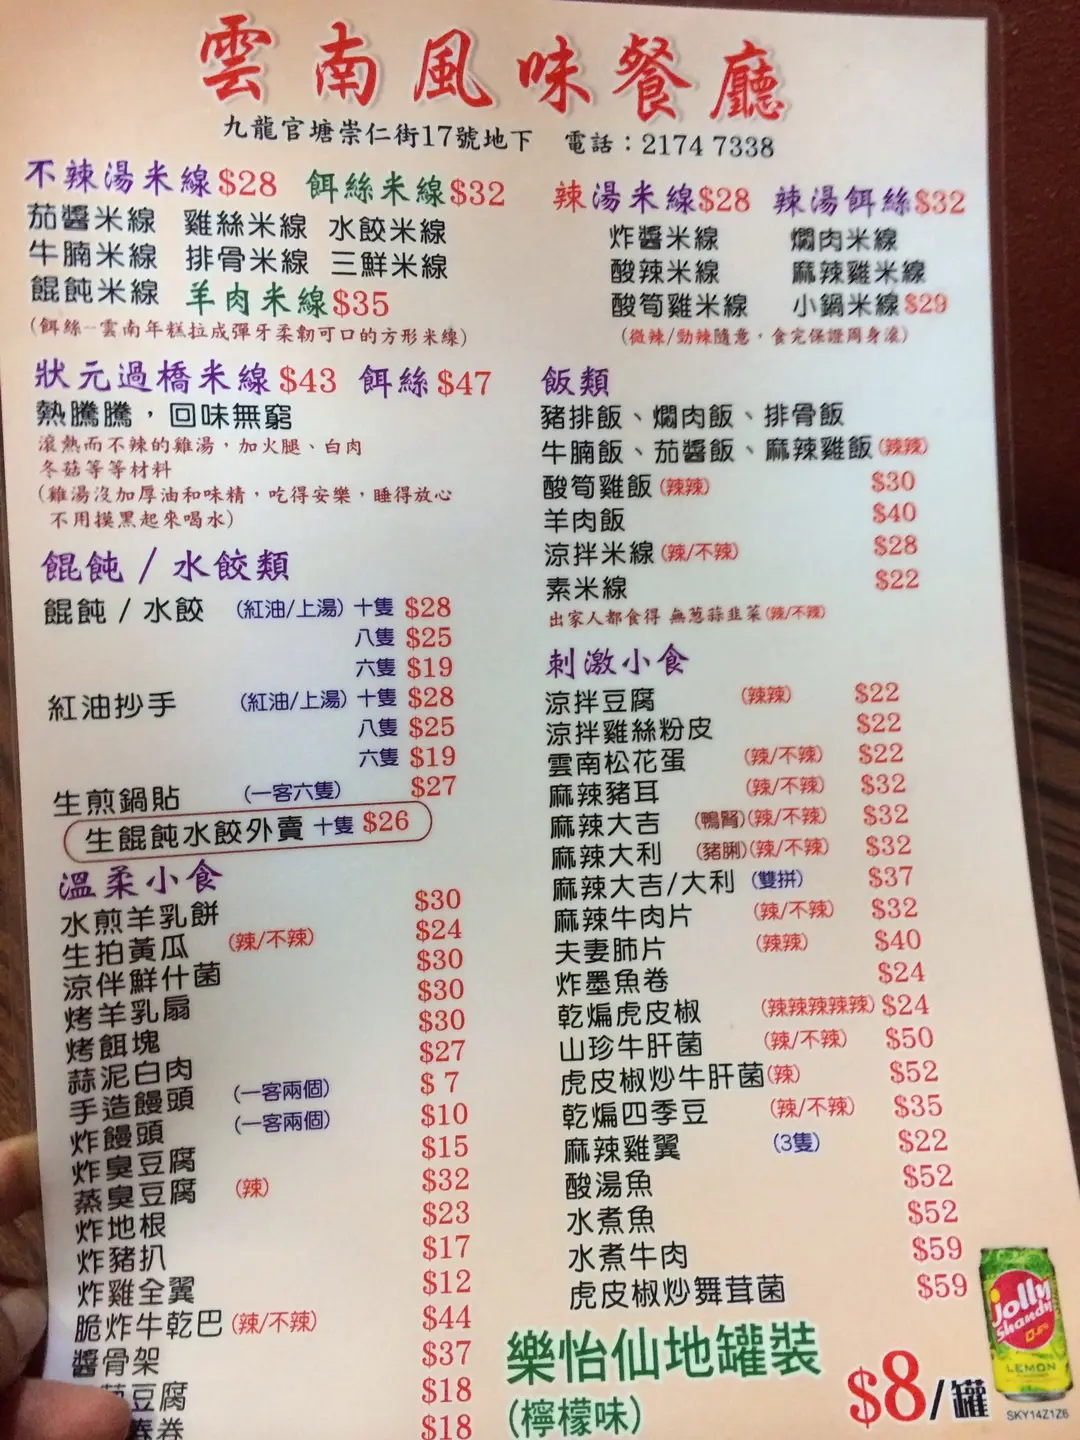 雲南風味餐廳
九龍官塘崇仁街17號地下 電話：2174 7338
不辣湯米線$28 餌絲米線$32
茄醬米線 雞絲米線 水餃米線
牛腩米線 排骨米線 三鮮米線
餛飩米線 羊肉米線$35
(餌絲-雲南年糕拉成彈牙柔韌可口的方形米線)
狀元過橋米線$43 餌絲$47
熱騰騰，回味無窮
滾熱而不辣的雞湯，加火腿、白肉
冬菇等等材料
(雞湯沒加厚油和味精，吃得安樂，睡得放心
不用摸黑起來喝水)
餛飩/水餃類
餛飩/水餃 (紅油/上湯) 十隻 $28
八隻 $25
六隻 $19
紅油抄手 (紅油/上湯) 十隻 $28
八隻 $25
六隻 $19
生煎鍋貼 (一客六隻) $27
生餛飩水餃外賣 十隻 $26
溫柔小食
水煎羊乳餅 $30
生拍黃瓜 (辣/不辣) $24
涼伴鮮什菌 $30
烤羊乳扇 $30
烤餌塊 $30
蒜泥白肉 $27
手造饅頭 (一客兩個) $7
炸饅頭 (一客兩個) $10
炸臭豆腐 $15
蒸臭豆腐 (辣) $32
炸地根 $23
炸豬扒 $17
炸雞全翼 $12
脆炸牛乾巴 (辣/不辣) $44
醬骨架 $37
豆腐 $18
春卷 $18
辣湯米線$28 辣湯餌絲$32
炸醬米線 燜肉米線
酸辣米線 麻辣雞米線
酸筍雞米線 小鍋米線$29
(微辣/勁辣隨意，食完保證周身滾)
飯類
豬排飯、燜肉飯、排骨飯
牛腩飯、茄醬飯、麻辣雞飯(辣辣)
酸筍雞飯(辣辣) $30
羊肉飯 $40
涼拌米線(辣/不辣) $28
素米線 $22
出家人都食得 無葱蒜韭菜(辣/不辣)
刺激小食
涼拌豆腐 (辣辣) $22
涼拌雞絲粉皮 $22
雲南松花蛋 (辣/不辣) $22
麻辣豬耳 (辣/不辣) $32
麻辣大吉 (鴨腎)(辣/不辣) $32
麻辣大利 (豬脷)(辣/不辣) $32
麻辣大吉/大利 (雙拼) $37
麻辣牛肉片 (辣/不辣) $32
夫妻肺片 (辣辣) $40
炸墨魚卷 $24
乾煸虎皮椒 (辣辣辣辣辣) $24
山珍牛肝菌 (辣/不辣) $50
虎皮椒炒牛肝菌(辣) $52
乾煸四季豆 (辣/不辣) $35
麻辣雞翼 (3隻) $22
酸湯魚 $52
水煮魚 $52
水煮牛肉 $59
虎皮椒炒舞茸菌 $59
樂怡仙地罐裝
(檸檬味) $8/罐
Jolly
Shandy
0.5%
LEMON
SKY14Z1Z6